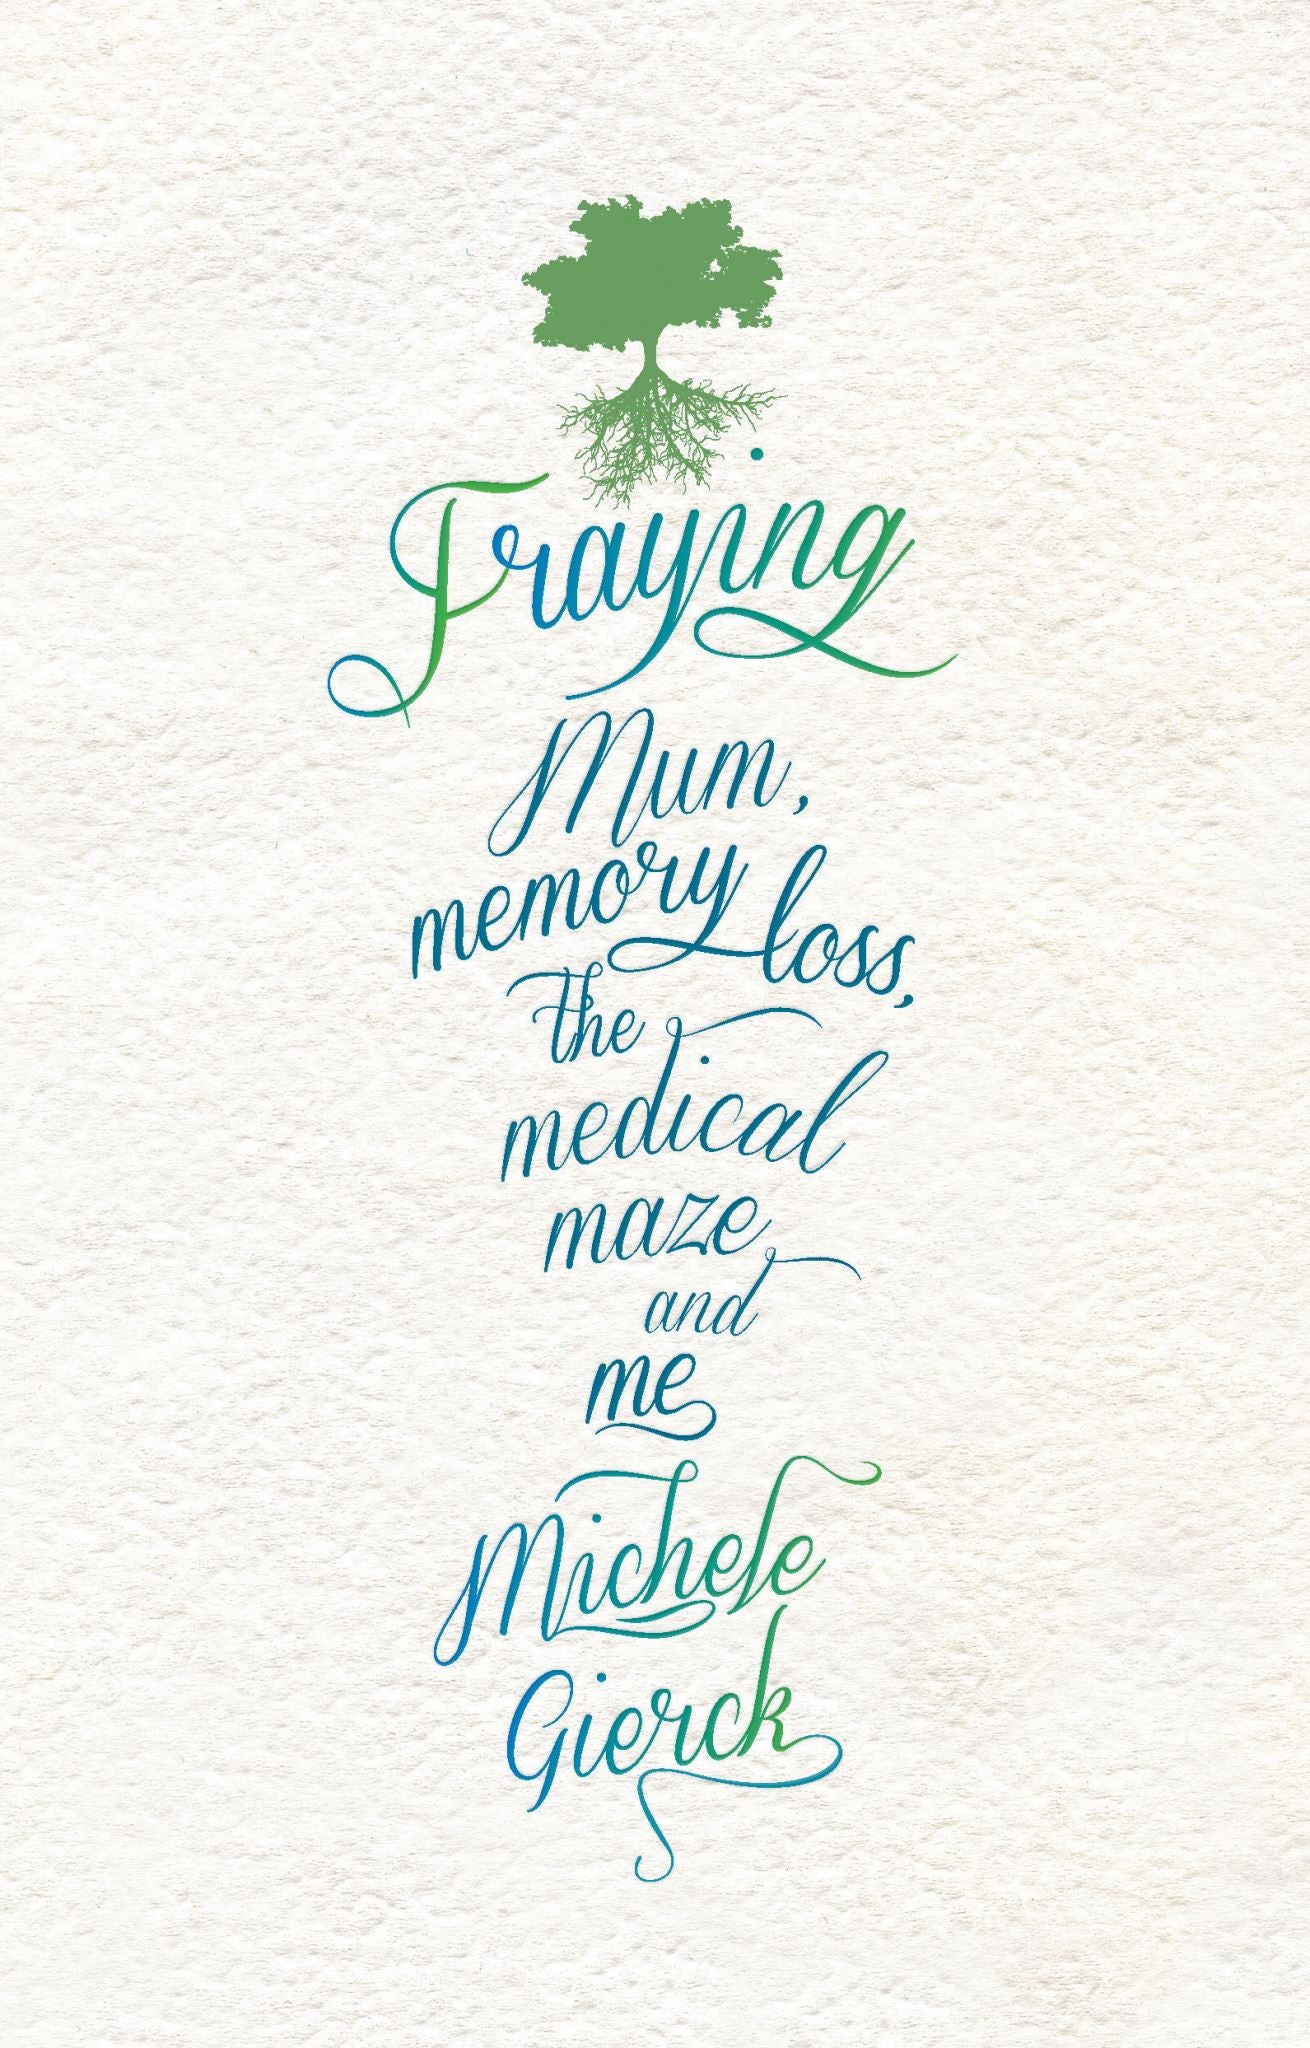 Fraying
Mum,
memory loss,
the
medical
maze
and
me
Michele
Gierck